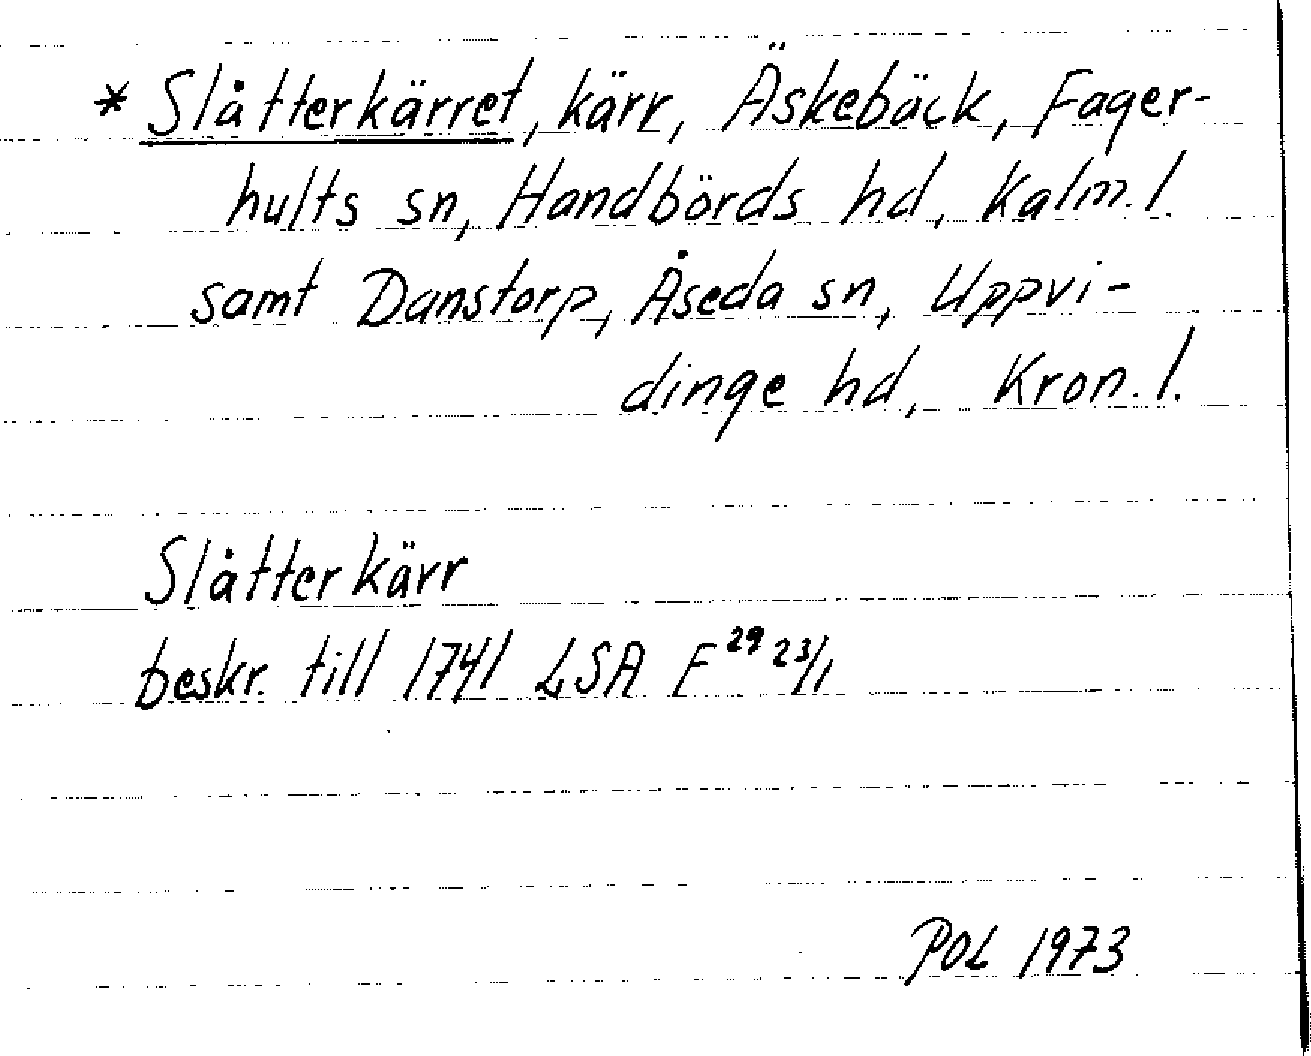 * Slåtterkärret, kärr, Äskebäck, Fager-
hults sn, Handbörds hd, Kalm. l.
samt Danstorp, Åseda sn, Uppvi-
dinge hd, Kron. l.
Slåtterkärr
beskr. till 1741 LSA F²⁹ ²³/₁
POL 1973